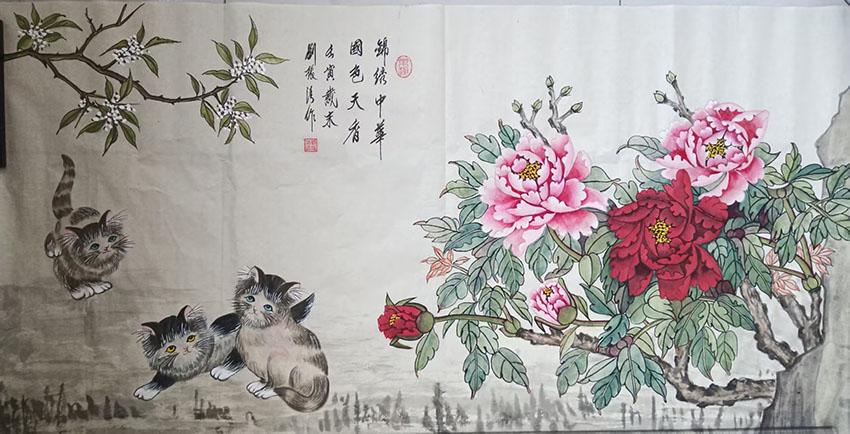 錦绣中華
國色天香
壬寅歲末
劉振清作